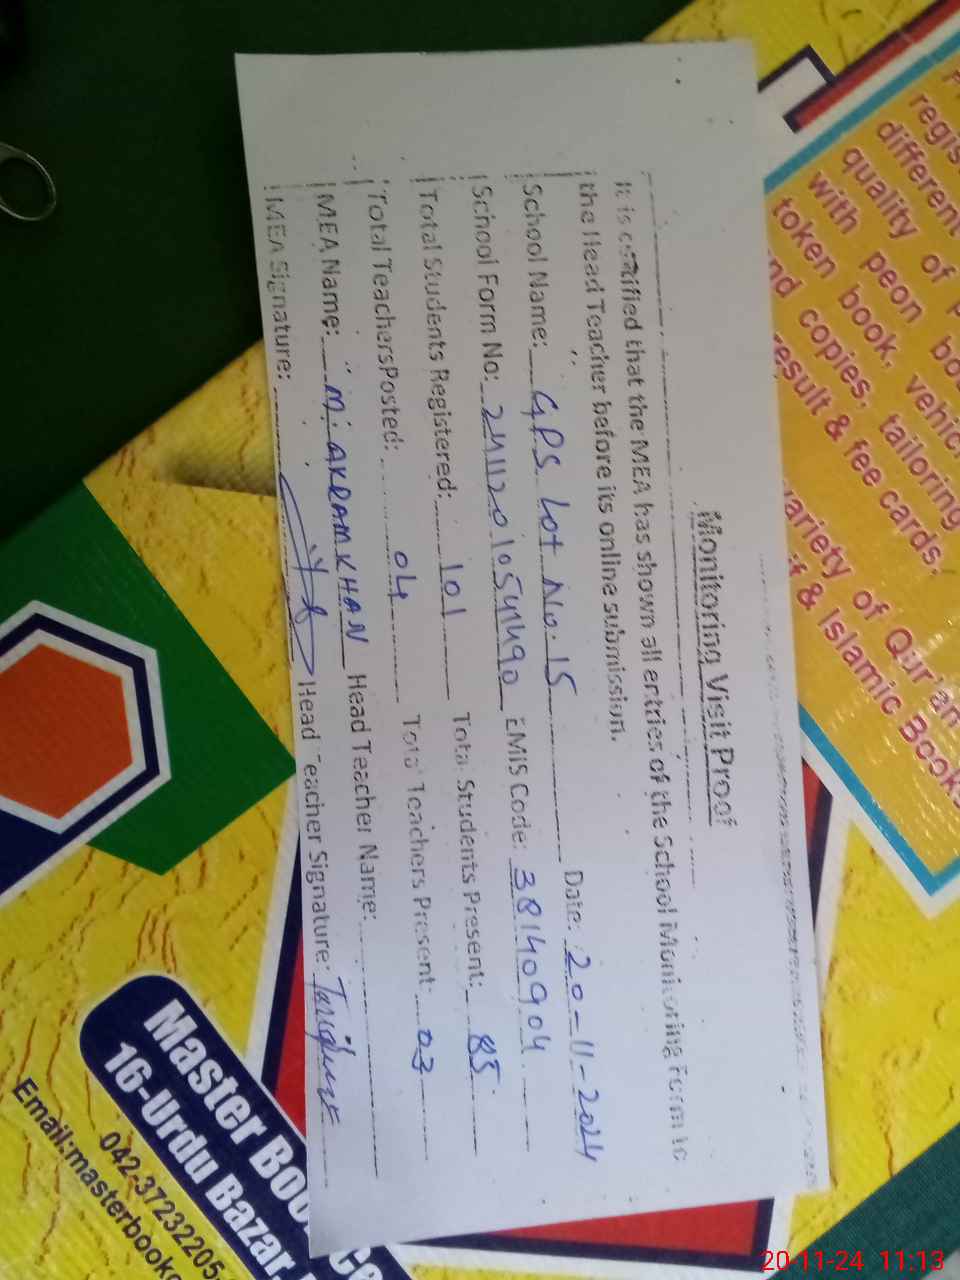 Monitoring Visit Proof
It is certified that the MEA has shown all entries of the School Monitoring Form to
the Head Teacher before its online submission.
School Name: GPS Lot No. 15 Date: 20-11-2024
School Form No: 24112010541490 EMIS Code: 38140904
Total Students Registered: 101 Total Students Present: 85
Total Teachers Posted: 04 Total Teachers Present: 03
MEA Name: M. AKRAM KHAN Head Teacher Name:
MEA Signature: Head Teacher Signature:
different
quality of
with peon
token book, vehic
nd copies, tailoring
result & fee cards.
variety of Qur'an
& Islamic Book
Master Boo
16-Urdu Bazar
042-37232205
Email:masterbook
20-11-24 11:13